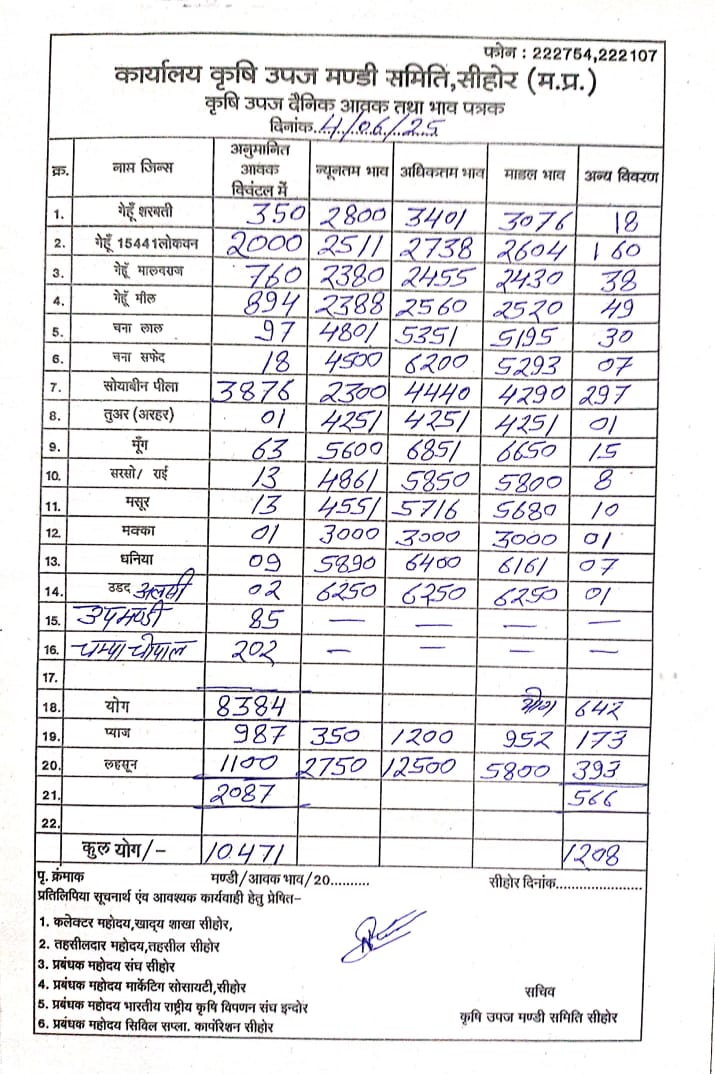 फोन : 222754,222107
कार्यालय कृषि उपज मण्डी समिति,सीहोर (म.प्र.)
कृषि उपज दैनिक आवक तथा भाव पत्रक
दिनांक..4/06/25
क्र. नाम जिन्स अनुमानित आवक क्विंटल में न्यूनतम भाव अधिकतम भाव माडल भाव अन्य विवरण
1. गेहूँ शरबती 350 2800 3401 3076 18
2. गेहूँ 15441लोकवन 2000 2511 2738 2604 160
3. गेहूँ मालवराज 760 2380 2455 2430 38
4. गेहूँ मील 894 2388 2560 2520 49
5. चना लाल 97 4801 5351 5195 30
6. चना सफेद 18 4500 6200 5293 07
7. सोयाबीन पीला 3876 2300 4440 4290 297
8. तुअर (अरहर) 01 4251 4251 4251 01
9. मूँग 63 5600 6851 6650 15
10. सरसो/ राई 13 4861 5850 5800 8
11. मसूर 13 4551 5716 5680 10
12. मक्का 01 3000 3000 3000 01
13. धनिया 09 5890 6400 6161 07
14. उडद अलसी 02 6250 6250 6250 01
15. उपमण्डी 85 — — — —
16. चम्पा चौपाल 202 — — — —
17.
18. योग 8384 योग 642
19. प्याज 987 350 1200 952 173
20. लहसून 1100 2750 12500 5800 393
21. 2087 566
22.
कुल योग/- 10471 1208
पृ. क्रंमाक मण्डी/आवक भाव/20.......... सीहोर दिनांक......................
प्रतिलिपिया सूचनार्थ एंव आवश्यक कार्यवाही हेतु प्रेषित–
1. कलेक्टर महोदय,खाद्य शाखा सीहोर,
2. तहसीलदार महोदय,तहसील सीहोर
3. प्रबंधक महोदय संघ सीहोर
4. प्रबंधक महोदय मार्केटिग सोसायटी,सीहोर
5. प्रबंधक महोदय भारतीय राष्ट्रीय कृषि विपणन संघ इन्दोर
6. प्रबंधक महोदय सिविल सप्ला. कार्पोरेशन सीहोर
सचिव
कृषि उपज मण्डी समिति सीहोर